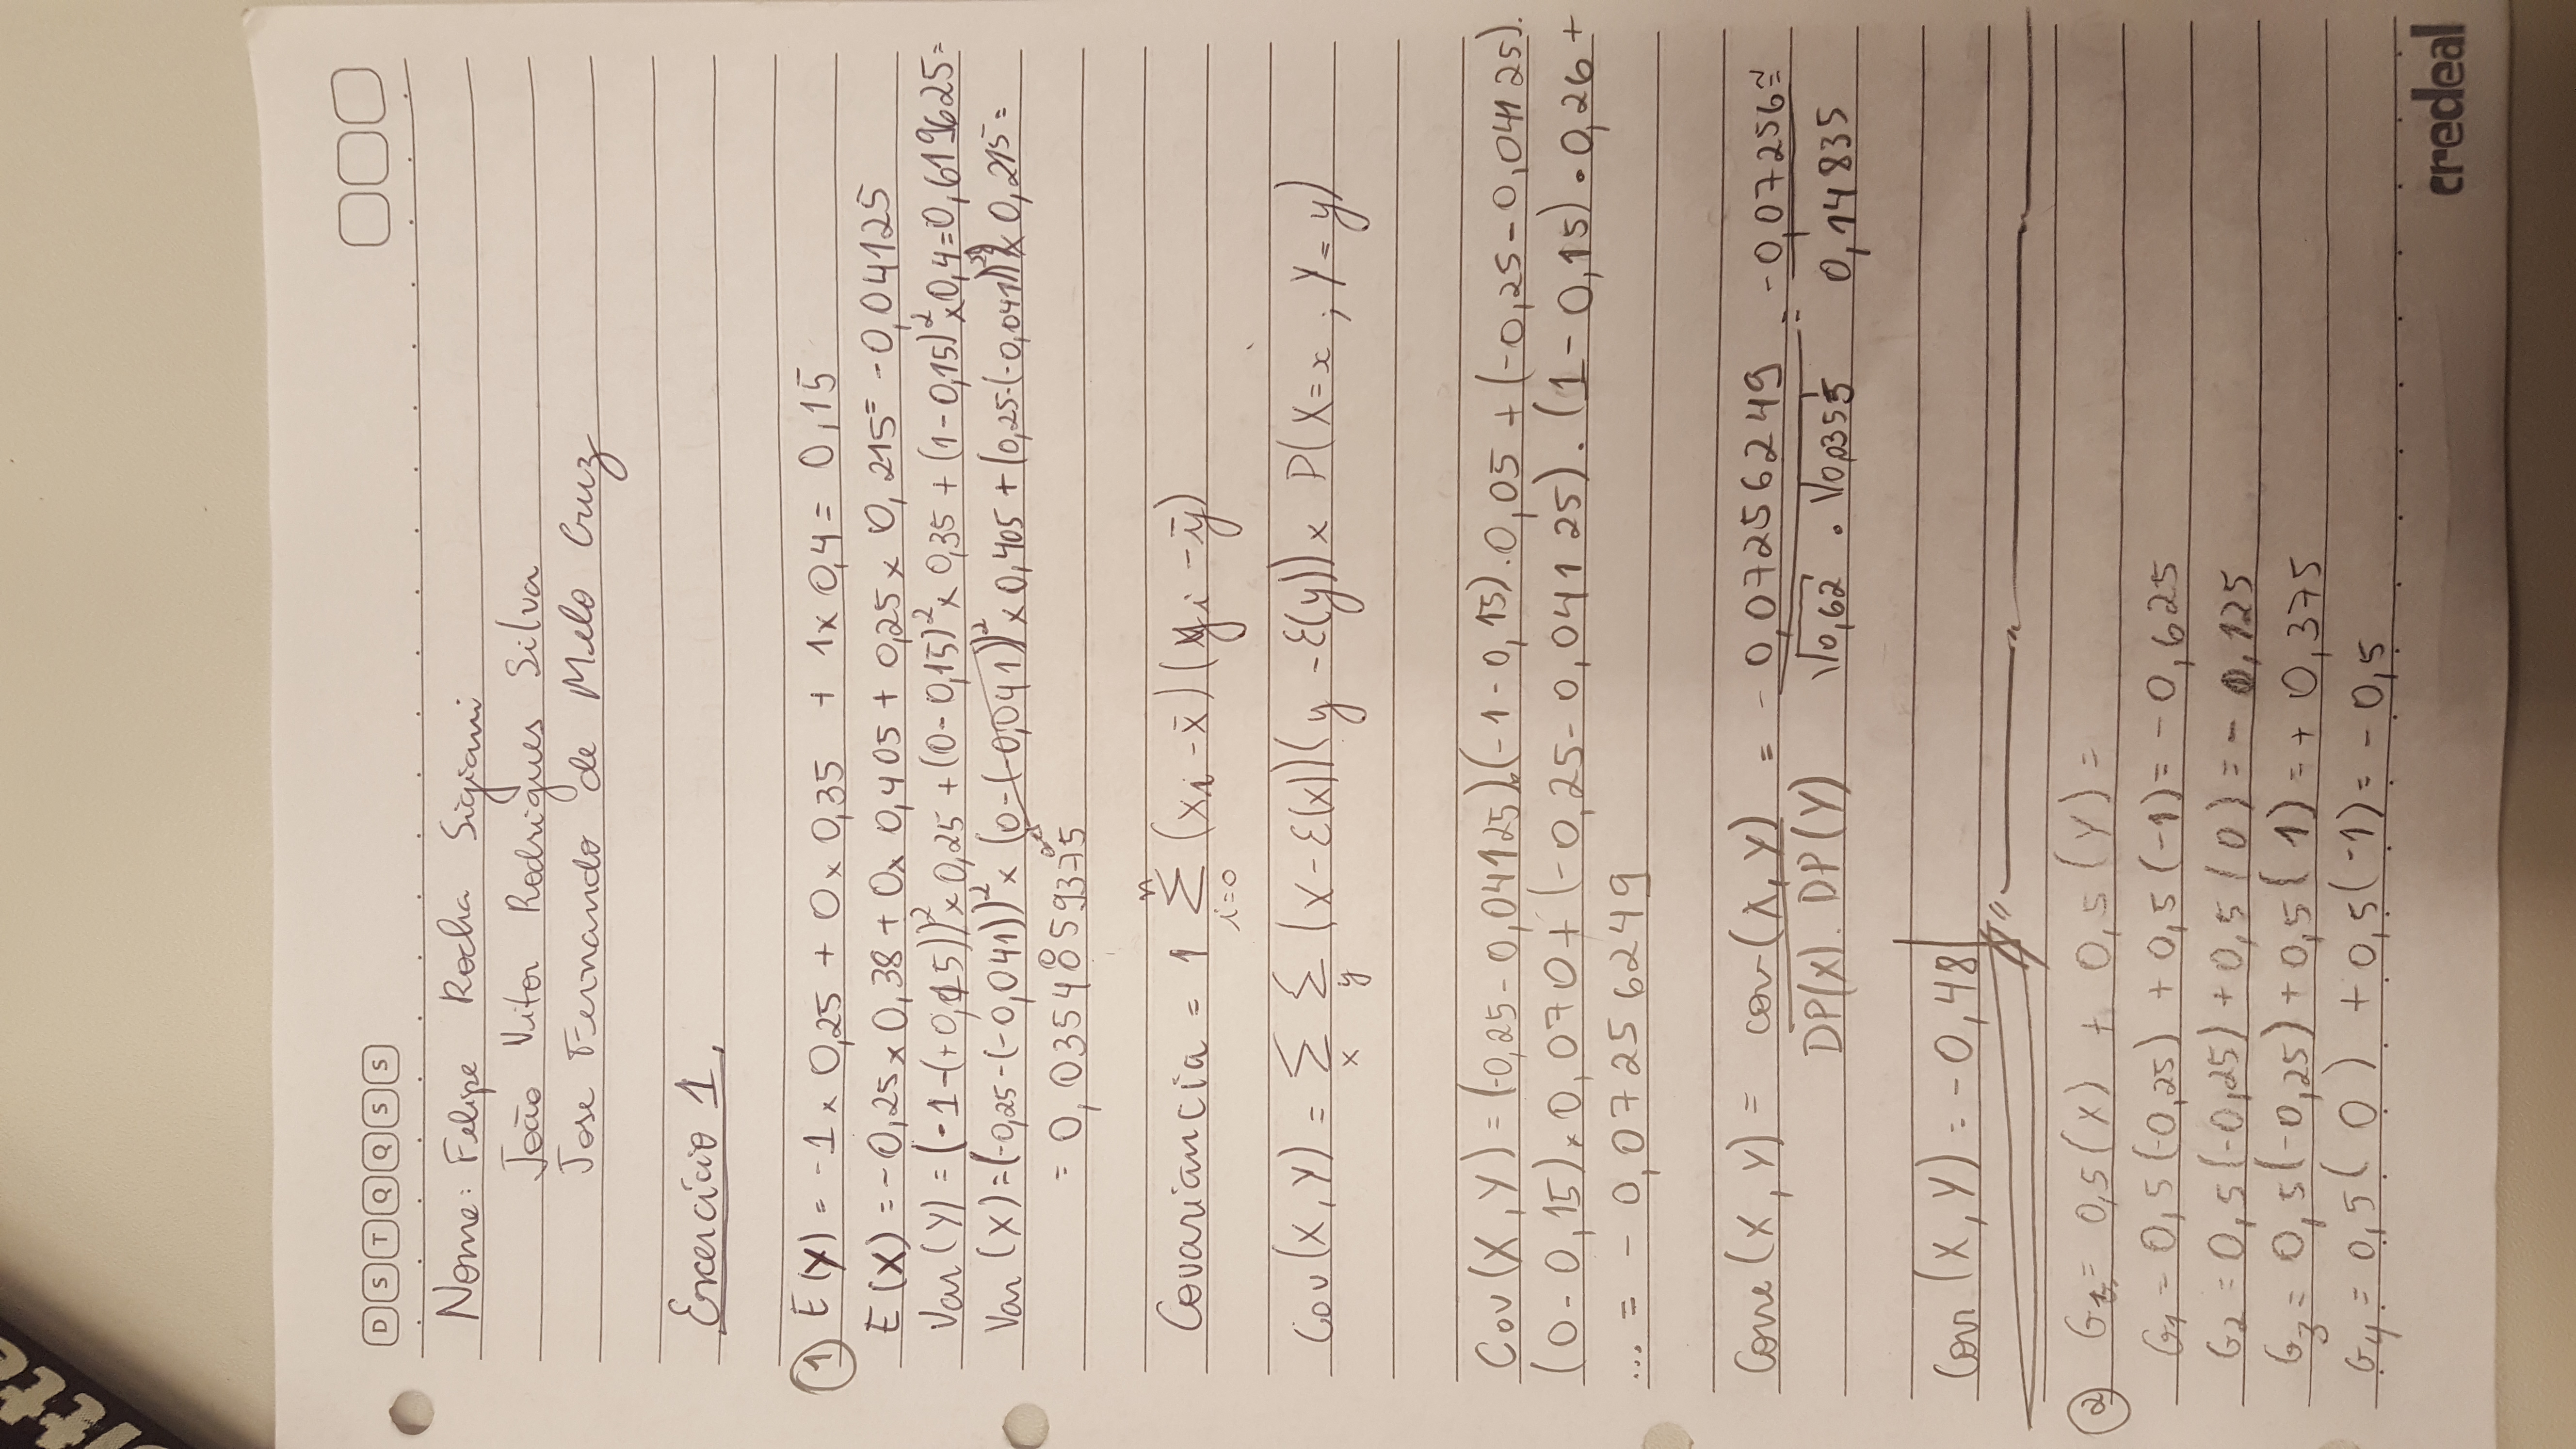 D S T Q Q S S
Nome: Felipe Rocha Sigiani
João Vitor Rodrigues Silva
Jose Fernando de Melo Cruz
Exercício 1.
① E(Y) = -1 x 0,25 + 0 x 0,35 + 1 x 0,4 = 0,15
E(X) = -0,25 x 0,38 + 0x 0,405 + 0,25 x 0,215 = -0,04125
Var(Y) = (-1-(+0,15))² x 0,25 + (0-0,15)² x 0,35 + (1-0,15)² x 0,4 = 0,619625 =
Var(X) = (-0,25-(-0,041))² x (0-(-0,041))² x 0,405 + (0,25-(-0,041))² x 0,215 =
= 0,0354859375
Covariancia = 1 n∑i=0 (xi - x̄)(yi - ȳ)
Cov(X,Y) = ∑x ∑y (X-E(x))(y-E(y)) x P(X=x ; Y=y)
Cov(X,Y) = (-0,25-0,04125).(-1-0,15).0,05 + (-0,25-0,04125).
(0-0,15) x 0,070 + (-0,25-0,04125).(1-0,15).0,26 +
... = -0,07256249
Corre(X,Y) = cov(X,Y) / DP(X).DP(Y) = -0,07256249 / √0,62 . √0,0355 = -0,07256 / 0,14835 ≅
Corr(X,Y) = -0,48
② G1 = 0,5(X) + 0,5(Y) =
G1 = 0,5(-0,25) + 0,5(-1) = -0,625
G2 = 0,5(-0,25) + 0,5(0) = -0,125
G3 = 0,5(-0,25) + 0,5(1) = +0,375
G4 = 0,5(0) + 0,5(-1) = -0,5
credeal